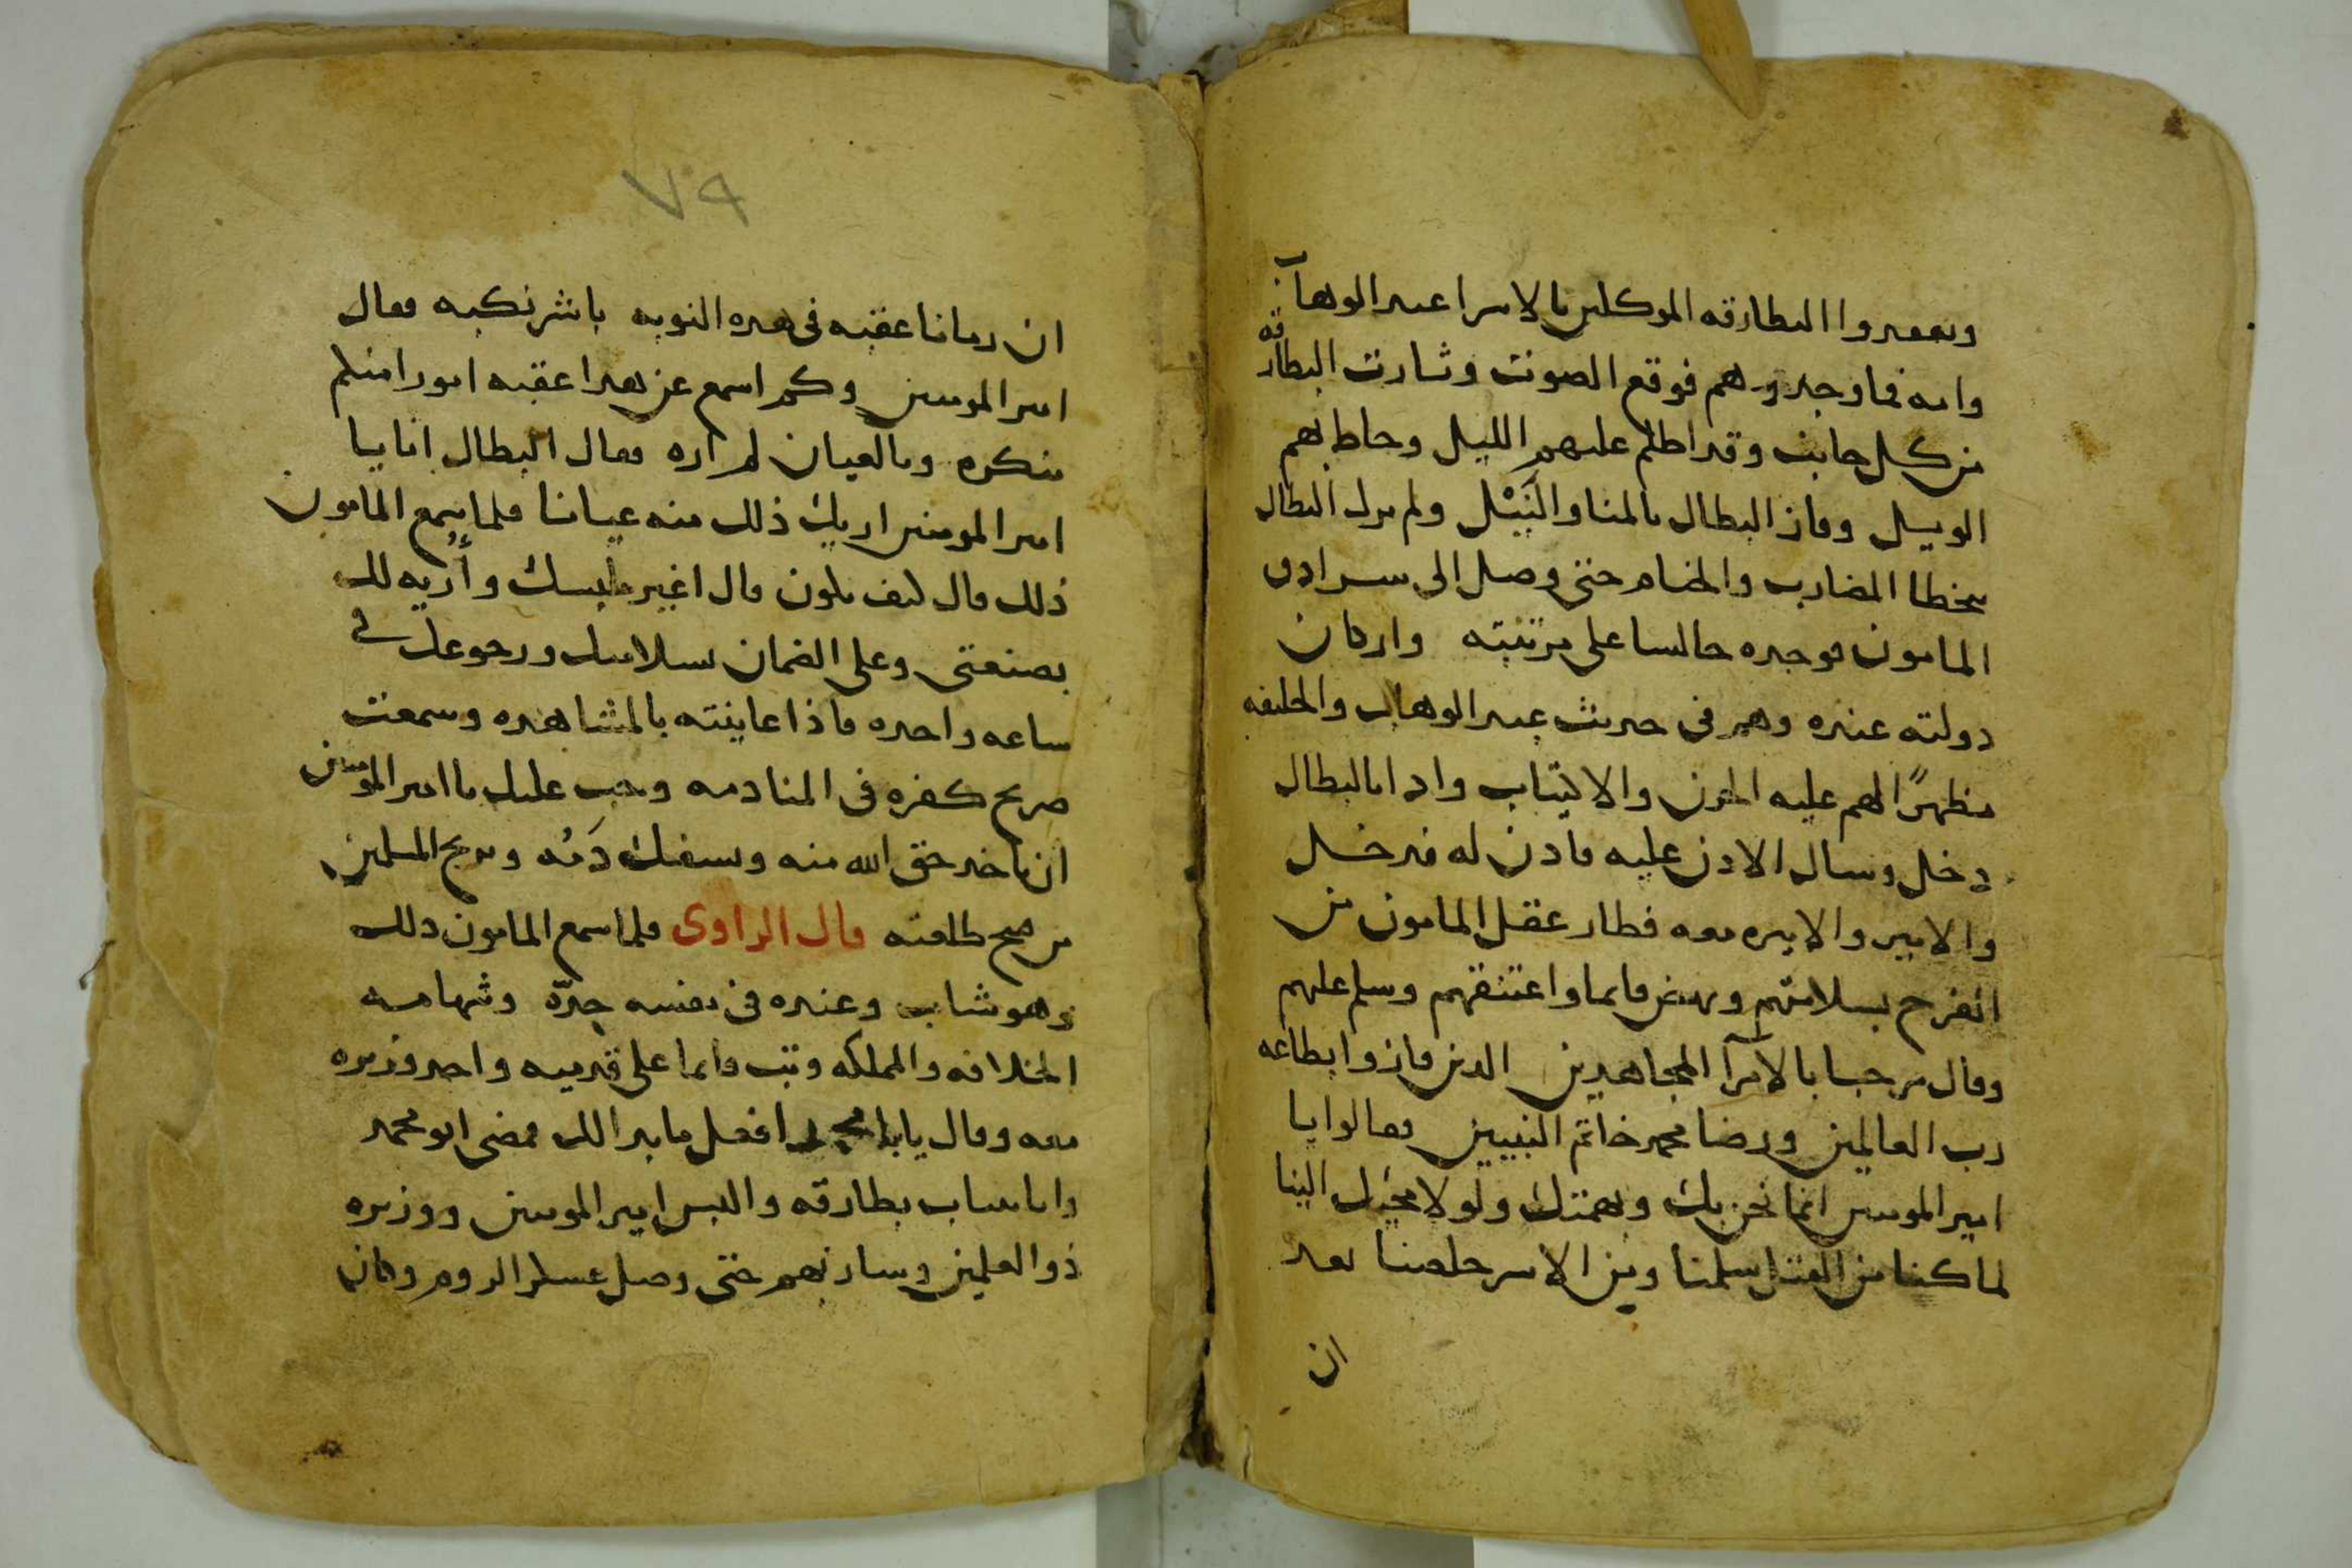 وتفقدوا البطارقه الموكلين بالاسرا عبد الوهاب
وامه فما وجدوهم فوقع الصوت وثارت البطارقه
من كل جانب وقد اظلم عليهم الليل وحاط بهم
الويل وفاز البطال بالمنا والنَيْل ولم يزل البطال
يتخطا المضارب والخيام حتى وصل الى سرادق
المامون فوجده جالسا على مرتبته واركان
دولته عنده وهم في حديث عبد الوهاب والخليفه
مظهرًا لهم عليه الحزن والاكتياب واذا بالبطال
دخل وسال الاذن عليه فاذن له فدخل
والامير والاميره معه فطار عقل المامون من
الفرح بسلامتهم ونهض قايما واعتنقهم وسلم عليهم
وقال مرحبا بالامرآ المجاهدين الذين فازوا بطاعه
رب العالمين ورضا محمد خاتم النبيين فقالوا يا
امير المومنين انما نحن بك وبهمتك ولولا مجيك الينا
لما كنا من القتل سلمنا ومن الاسر خلصنا بعد
ان
٧٩
ان رمانا عقبه في هده النوبه باشر نكبه فقال
امير المومنين وكم اسمع عن هدا عقبه امورا منكم
منكره وبالعيان لم اره فقال البطال انا يا
امير المومنين اريك ذلك منه عيانا فلما سمع المامون
ذلك قال كيف يكون قال اغير ملبسك وأريه لك
بصنعتي وعلي الضمان بسلامتك ورجوعك في
ساعه واحده فاذا عاينته بالمشاهده وسمعت
صريح كفره في المنادمه وجب عليك يا امير المومنين
ان تاخد حق الله منه وتسفك دَمُه وتريح المسلمين
من قبيح طلعته قال الراوى فلما سمع المامون دلك
وهو شاب وعنده في نفسه حِدّه وشهامه
الخلافه والمملكه وثب قايما على قدميه واخد وزيره
معه وقال يا با محمد افعل ما بدا لك فمضى ابو محمد
واتا بثياب بطارقه والبس امير المومنين ووزيره
ذو القلمين وسار بهم حتى وصل عسكر الروم وكان